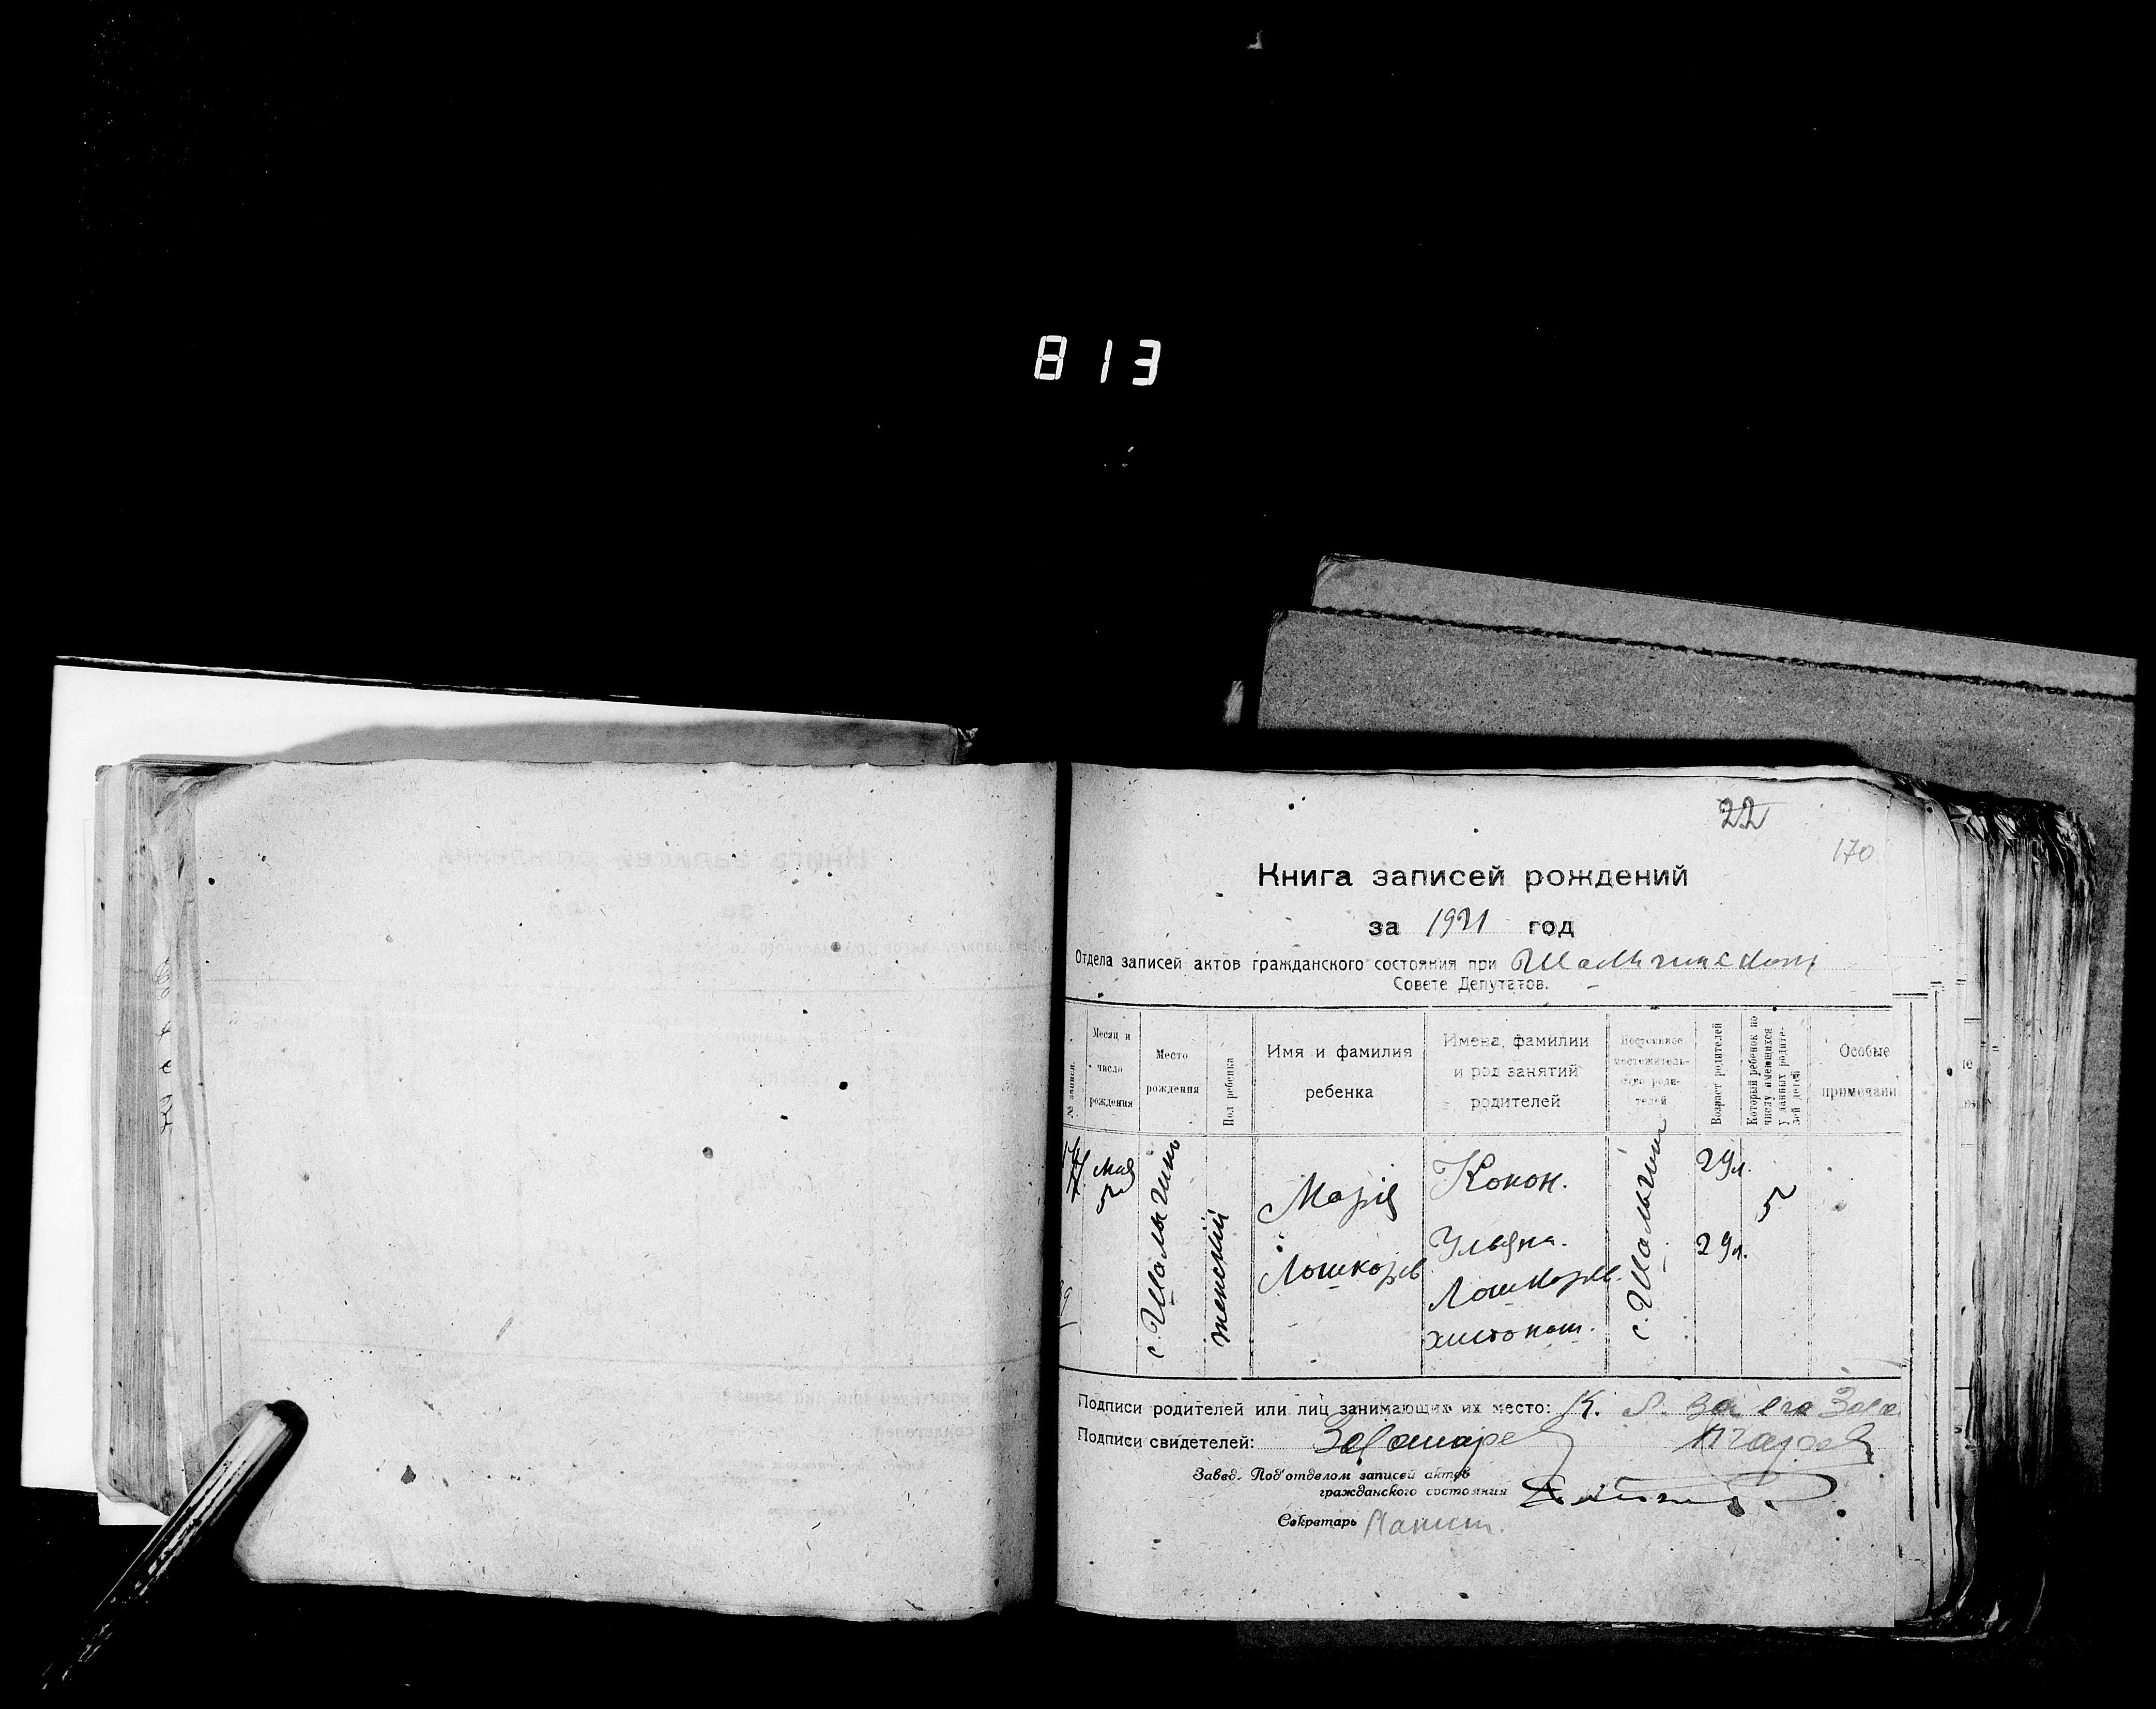 813
22
170
Книга записей рождений
за 1921 год
Отдела записей актов гражданского состояния при
Совете Депутатов.
№ записи.
Месяц и число рождения
Место рождения
Пол ребенка
Имя и фамилия ребенка
Имена, фамилии и род занятий родителей
Постоянное местожительство родителей
Возраст родителей
Который ребенок по числу имеющихся у данных родителей детей
Особые примечани
Мая 5
с. Шалыгино
женский
Марія
Лошкарёв
Конон.
Ульяна.
Лошкарев.
с. Шалыгин
29 л.
29 л.
5
Подписи родителей или лиц занимающих их место: К. Л. За его
Подписи свидетелей:
Завед. Под'отделом записей актов
гражданского состояния
Секретарь